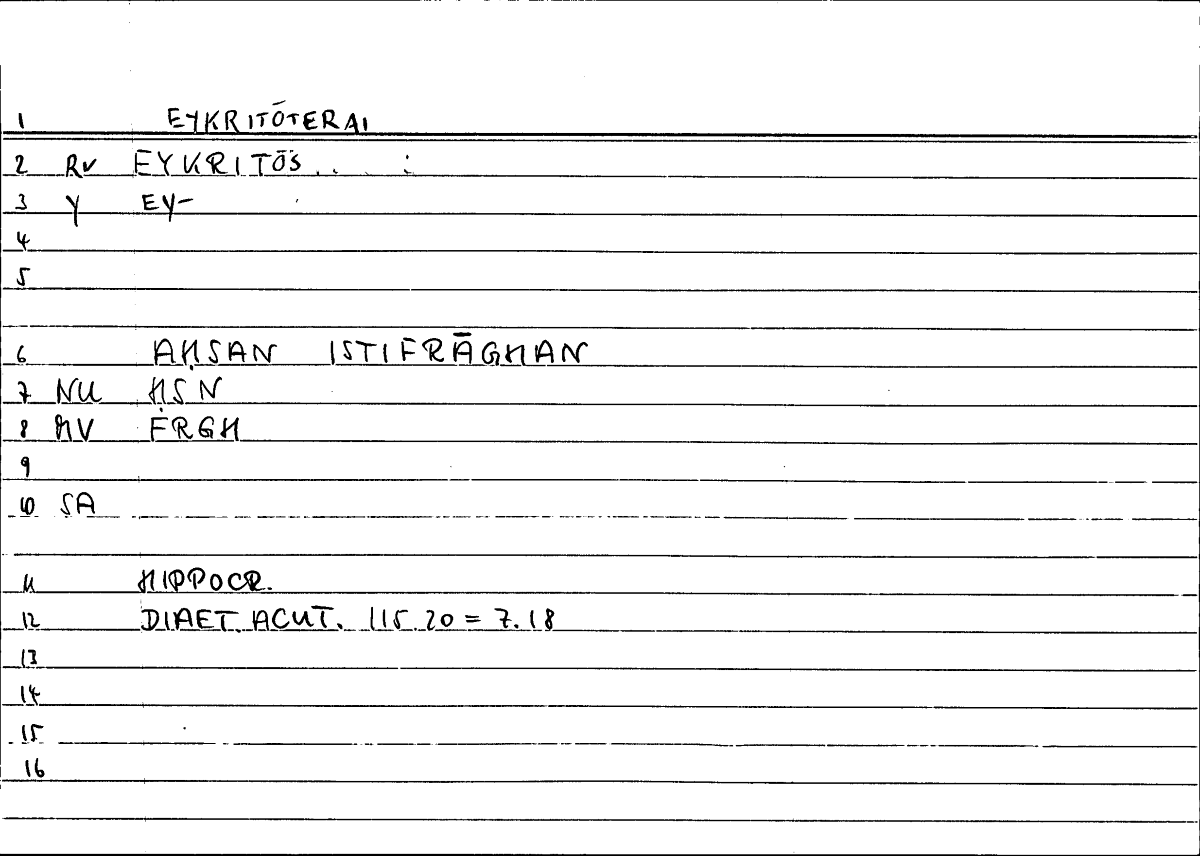 1 EYKRITŌTERAI
2 RV EYKRITŌS . . . :
3 Y EY-
4
5
6 AḤSAN ISTIFRĀGHAN
7 NU ḤSN
8 MV FRGH
9
10 SA
11 HIPPOCR.
12 DIAET. ACUT. 115.20 = 7.18
13
14
15
16